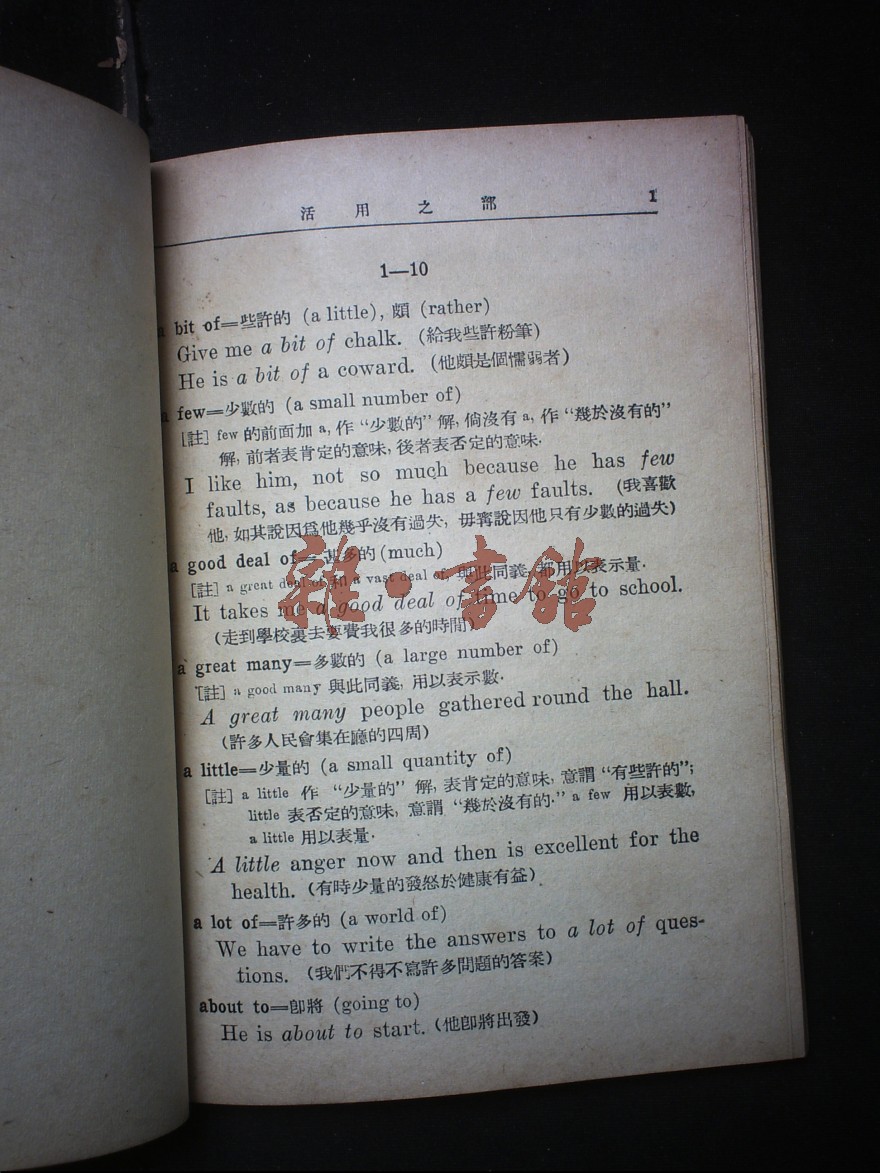 活用之部 1
1—10
a bit of=些許的 (a little), 頗 (rather)
Give me a bit of chalk. (給我些許粉筆)
He is a bit of a coward. (他頗是個懦弱者)
a few=少數的 (a small number of)
[註] few 的前面加 a, 作 “少數的” 解, 倘沒有 a, 作 “幾於沒有的”
解, 前者表肯定的意味, 後者表否定的意味.
I like him, not so much because he has few
faults, as because he has a few faults. (我喜歡
他, 如其說因爲他幾乎沒有過失, 毋寧說因他只有少數的過失)
a good deal of=甚多的 (much)
[註] a great deal of 和 a vast deal of 與此同義, 都用以表示量.
It takes me a good deal of time to go to school.
(走到學校裏去要費我很多的時間)
a great many=多數的 (a large number of)
[註] a good many 與此同義, 用以表示數.
A great many people gathered round the hall.
(許多人民會集在廳的四周)
a little=少量的 (a small quantity of)
[註] a little 作 “少量的” 解, 表肯定的意味, 意謂 “有些許的”;
little 表否定的意味, 意謂 “幾於沒有的.” a few 用以表數,
a little 用以表量.
A little anger now and then is excellent for the
health. (有時少量的發怒於健康有益)
a lot of=許多的 (a world of)
We have to write the answers to a lot of ques-
tions. (我們不得不寫許多問題的答案)
about to=卽將 (going to)
He is about to start. (他卽將出發)
雜·書館